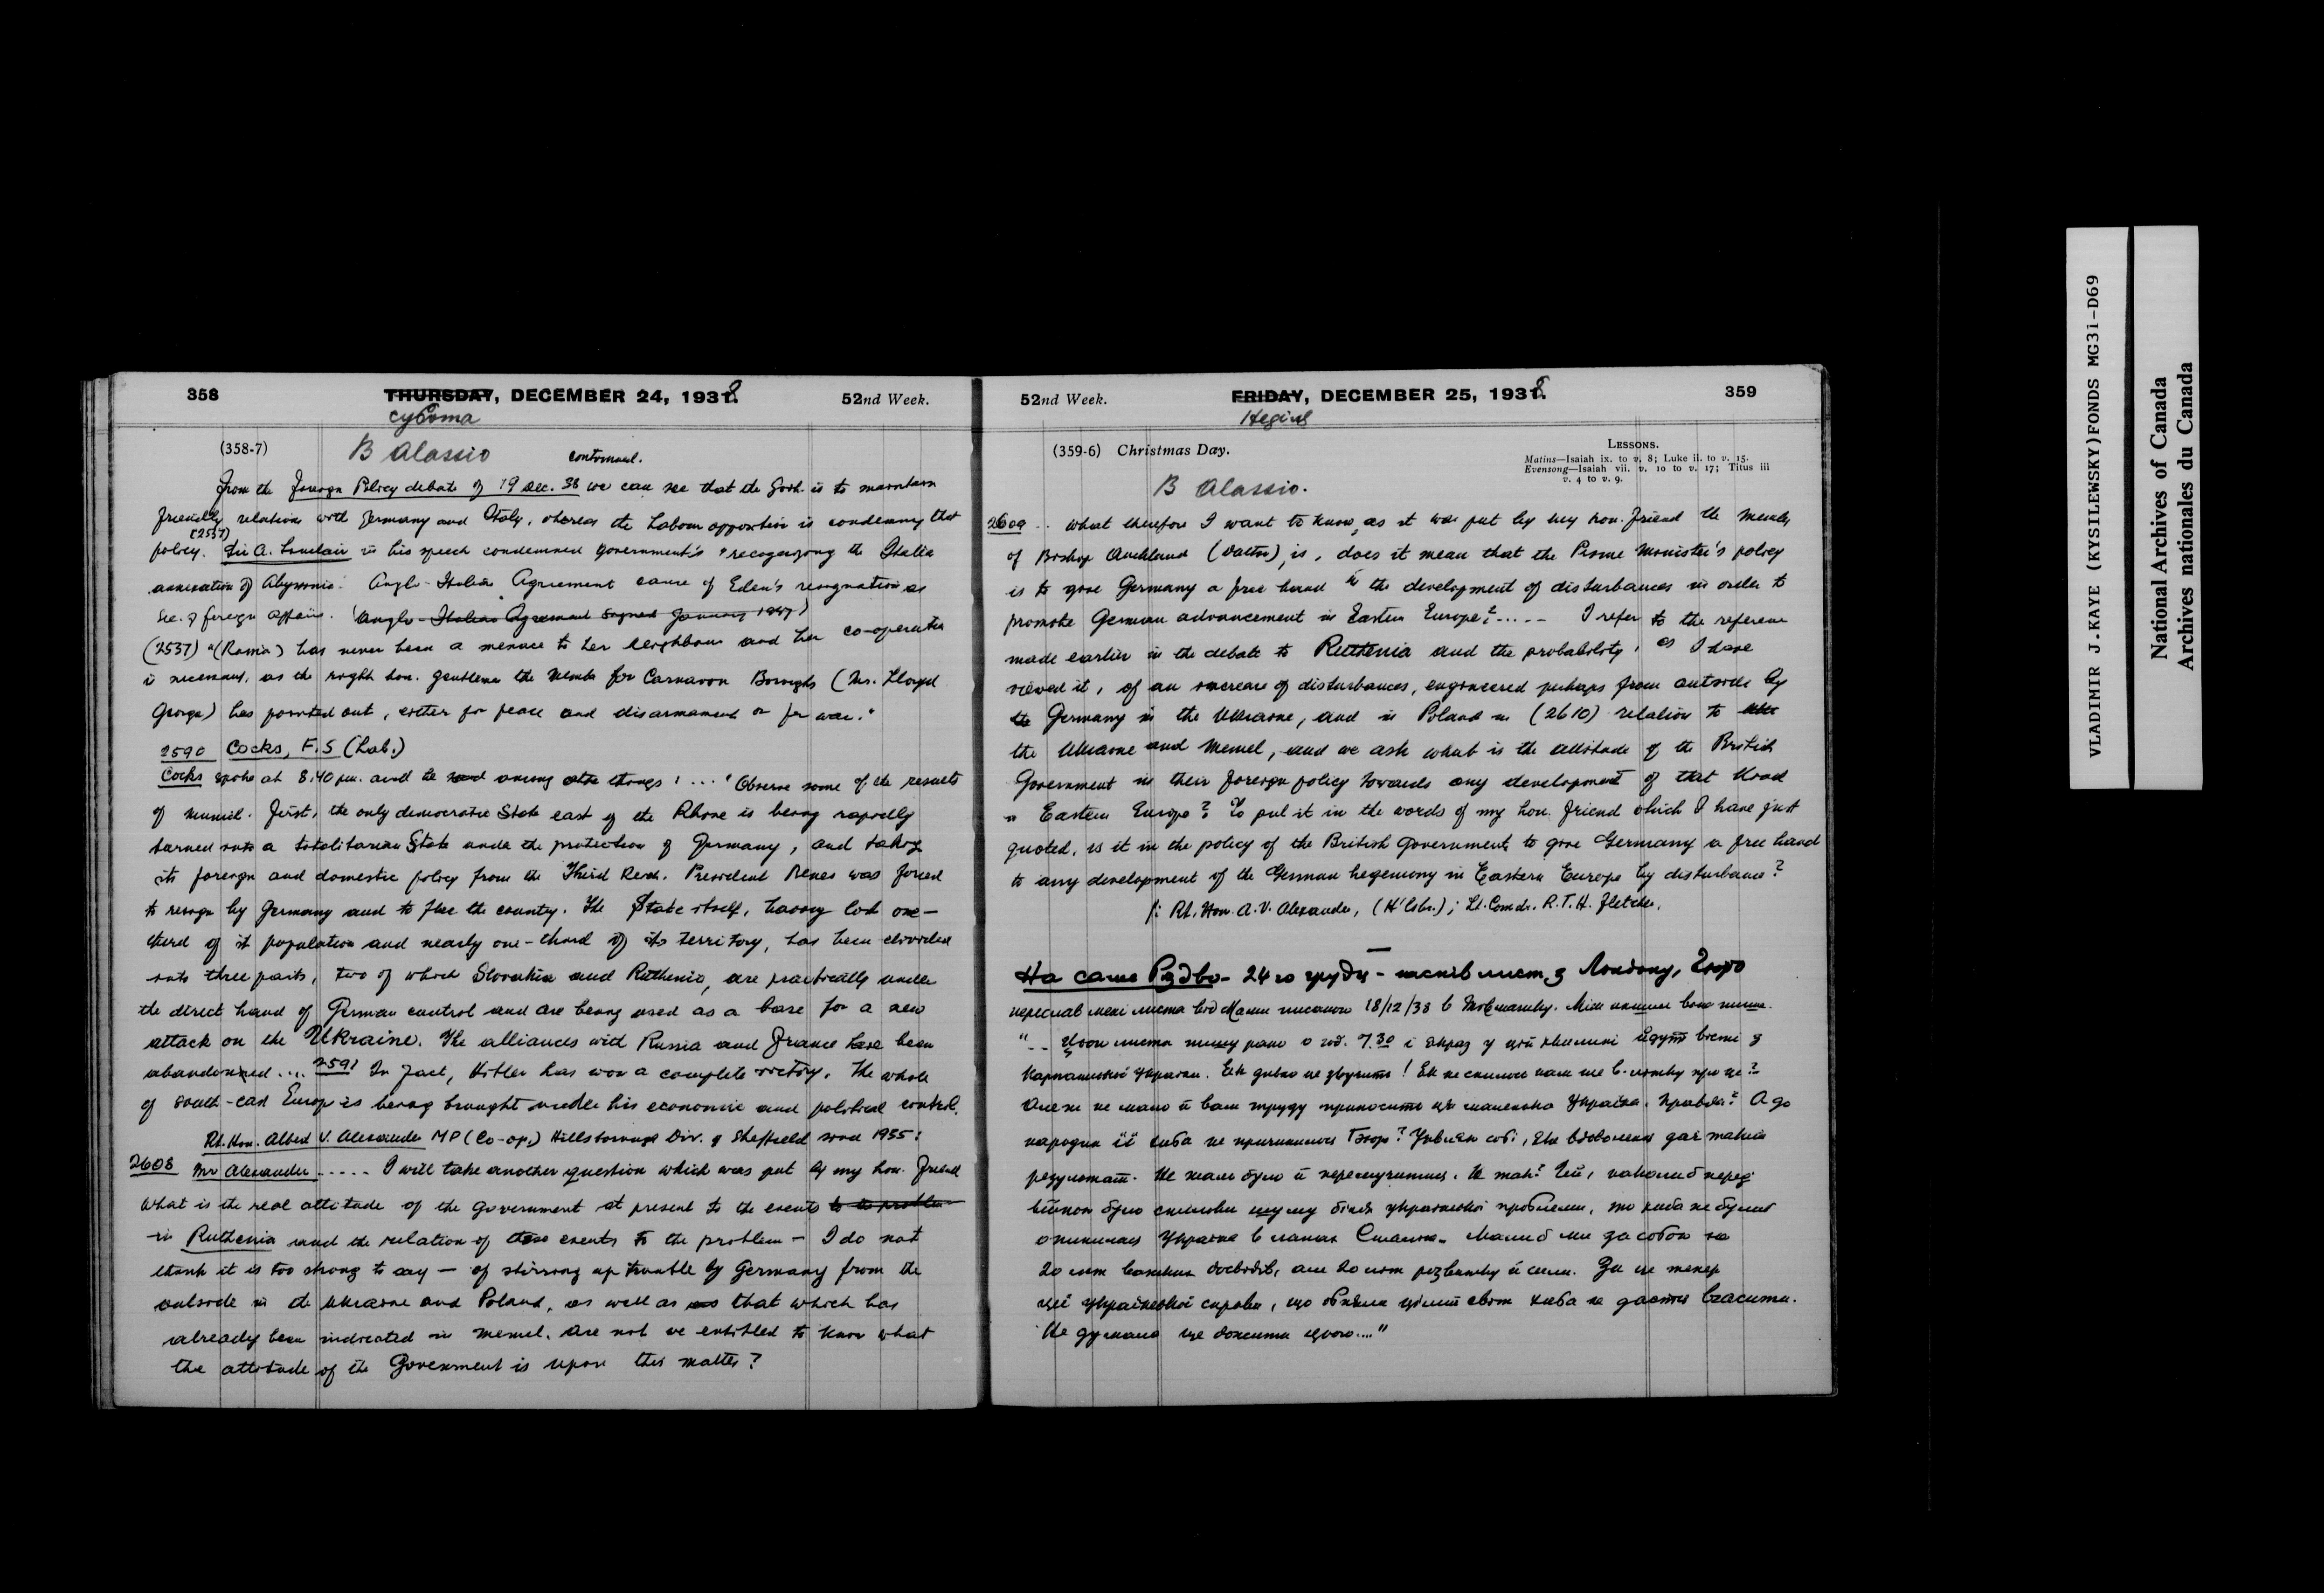 358
THURSDAY, DECEMBER 24, 1938.
52nd Week.
субота
(358-7)
В Alassio continued.
From the Foreign Policy debate of 19 Dec. 38 we can see that the Govt. is to maintain
friendly relations with Germany and Italy, whereas the Labour opposition is condemning that
(2537)
policy. Sir A. Sinclair in his speech condemned Government's "recognizing the Italian
annexation of Abyssinia. Anglo-Italian Agreement cause of Eden's resignation as
Sec. of foreign affairs. (Anglo-Italian Agreement signed January 1937)
(2537) "(Russia) has never been a menace to her neighbours and her co-operation
is necessary, as the right hon. gentleman the Member for Carnarvon Boroughs (Mr. Lloyd
George) has pointed out, either for peace and disarmament or for war."
2590 Cocks, F.S (Lab.)
Cocks spoke at 8.40 p.m. and he said among other things: ... "Observe some of the results
of Munich. First, the only democratic State east of the Rhine is being rapidly
turned into a totalitarian State under the protection of Germany, and taking
its foreign and domestic policy from the Third Reich. President Benes was forced
to resign by Germany and to flee the country. The State itself, having lost one-
third of it population and nearly one-third of its territory, has been divided
into three parts, two of which Slovakia and Ruthenia, are practically under
the direct hand of German control and are being used as a base for a new
attack on the Ukraine. The alliances with Russia and France have been
abandoned ... 2591 In fact, Hitler has won a complete victory. The whole
of south-east Europe is being brought under his economic and political control.
Rt. Hon. Albert V. Alexander MP (Co-op.) Hillsborough Div. of Sheffield since 1935:
2608 Mr Alexander ..... I will take another question which was put by my hon. Friend
What is the real attitude of the Government at present to the events to the problem
in Ruthenia and the relation of those events to the problem — I do not
think it is too strong to say — of stirring up trouble by Germany from the
outside in the Ukraine and Poland, as well as that which has
already been indicated in Memel. Are not we entitled to know what
the attitude of the Government is upon this matter?
52nd Week.
FRIDAY, DECEMBER 25, 1938.
359
Неділя
(359-6) Christmas Day.
LESSONS.
Matins—Isaiah ix. to v. 8; Luke ii. to v. 15.
Evensong—Isaiah vii. v. 10 to v. 17; Titus iii
v. 4 to v. 9.
В Alassio.
2609 .. What therefore I want to know, as it was put by my hon. friend the Member
of Bishop Auckland (Dalton), is, does it mean that the Prime Minister's policy
is to give Germany a free hand in the development of disturbances in order to
promote German advancement in Eastern Europe? ..... I refer to the reference
made earlier in the debate to Ruthenia and the probability, as I have
viewed it, of an increase of disturbances, engineered perhaps from outside by
the Germany in the Ukraine, and in Poland in (2610) relation to
the Ukraine and Memel, and we ask what is the attitude of the British
Government in their foreign policy towards any development of that kind
in Eastern Europe? To put it in the words of my hon. friend which I have just
quoted, is it in the policy of the British Government to give Germany a free hand
to any development of the German hegemony in Eastern Europe by disturbance?
/: Rt. Hon. A.V. Alexander, (H'lsbr.); Lt. Comdr. R.T.H. Fletcher.
На саме Різдво - 24 го грудня - наспів лист з Лондону,
переслав мені листа від Мами писаного 18/12/38 в Товмачику. Між иншим вона пише.
".. Цього листа пишу рано о год. 7.30 і якраз у цій хвилині йдуть вістки з
Карпатської України. Як дивно це звучить! Як не снилось нам ще в про це?
Але ж не мало й вам труду приносить ця маленька Україна. Правда? А до
народин її хиба не причинився Бюро? Уявляю собі, яке вдоволення дає такий
результат. Не жаль було й перемучитись. Не так? Гей, наколиб перед
війною було стільки шуму біля української проблеми, то хиба не булаб
опинилась Україна в лапах Сталіна. Малиб ми за собою не
20 літ важких досвідів, але 20 літ розвитку й сили. За це тепер
цеї української справи, що обняла цілий світ хиба не дасться вгасити.
Не думала ще дожити цього...."
VLADIMIR J.KAYE (KYSILEWSKY)FONDS MG31-D69
National Archives of Canada
Archives nationales du Canada